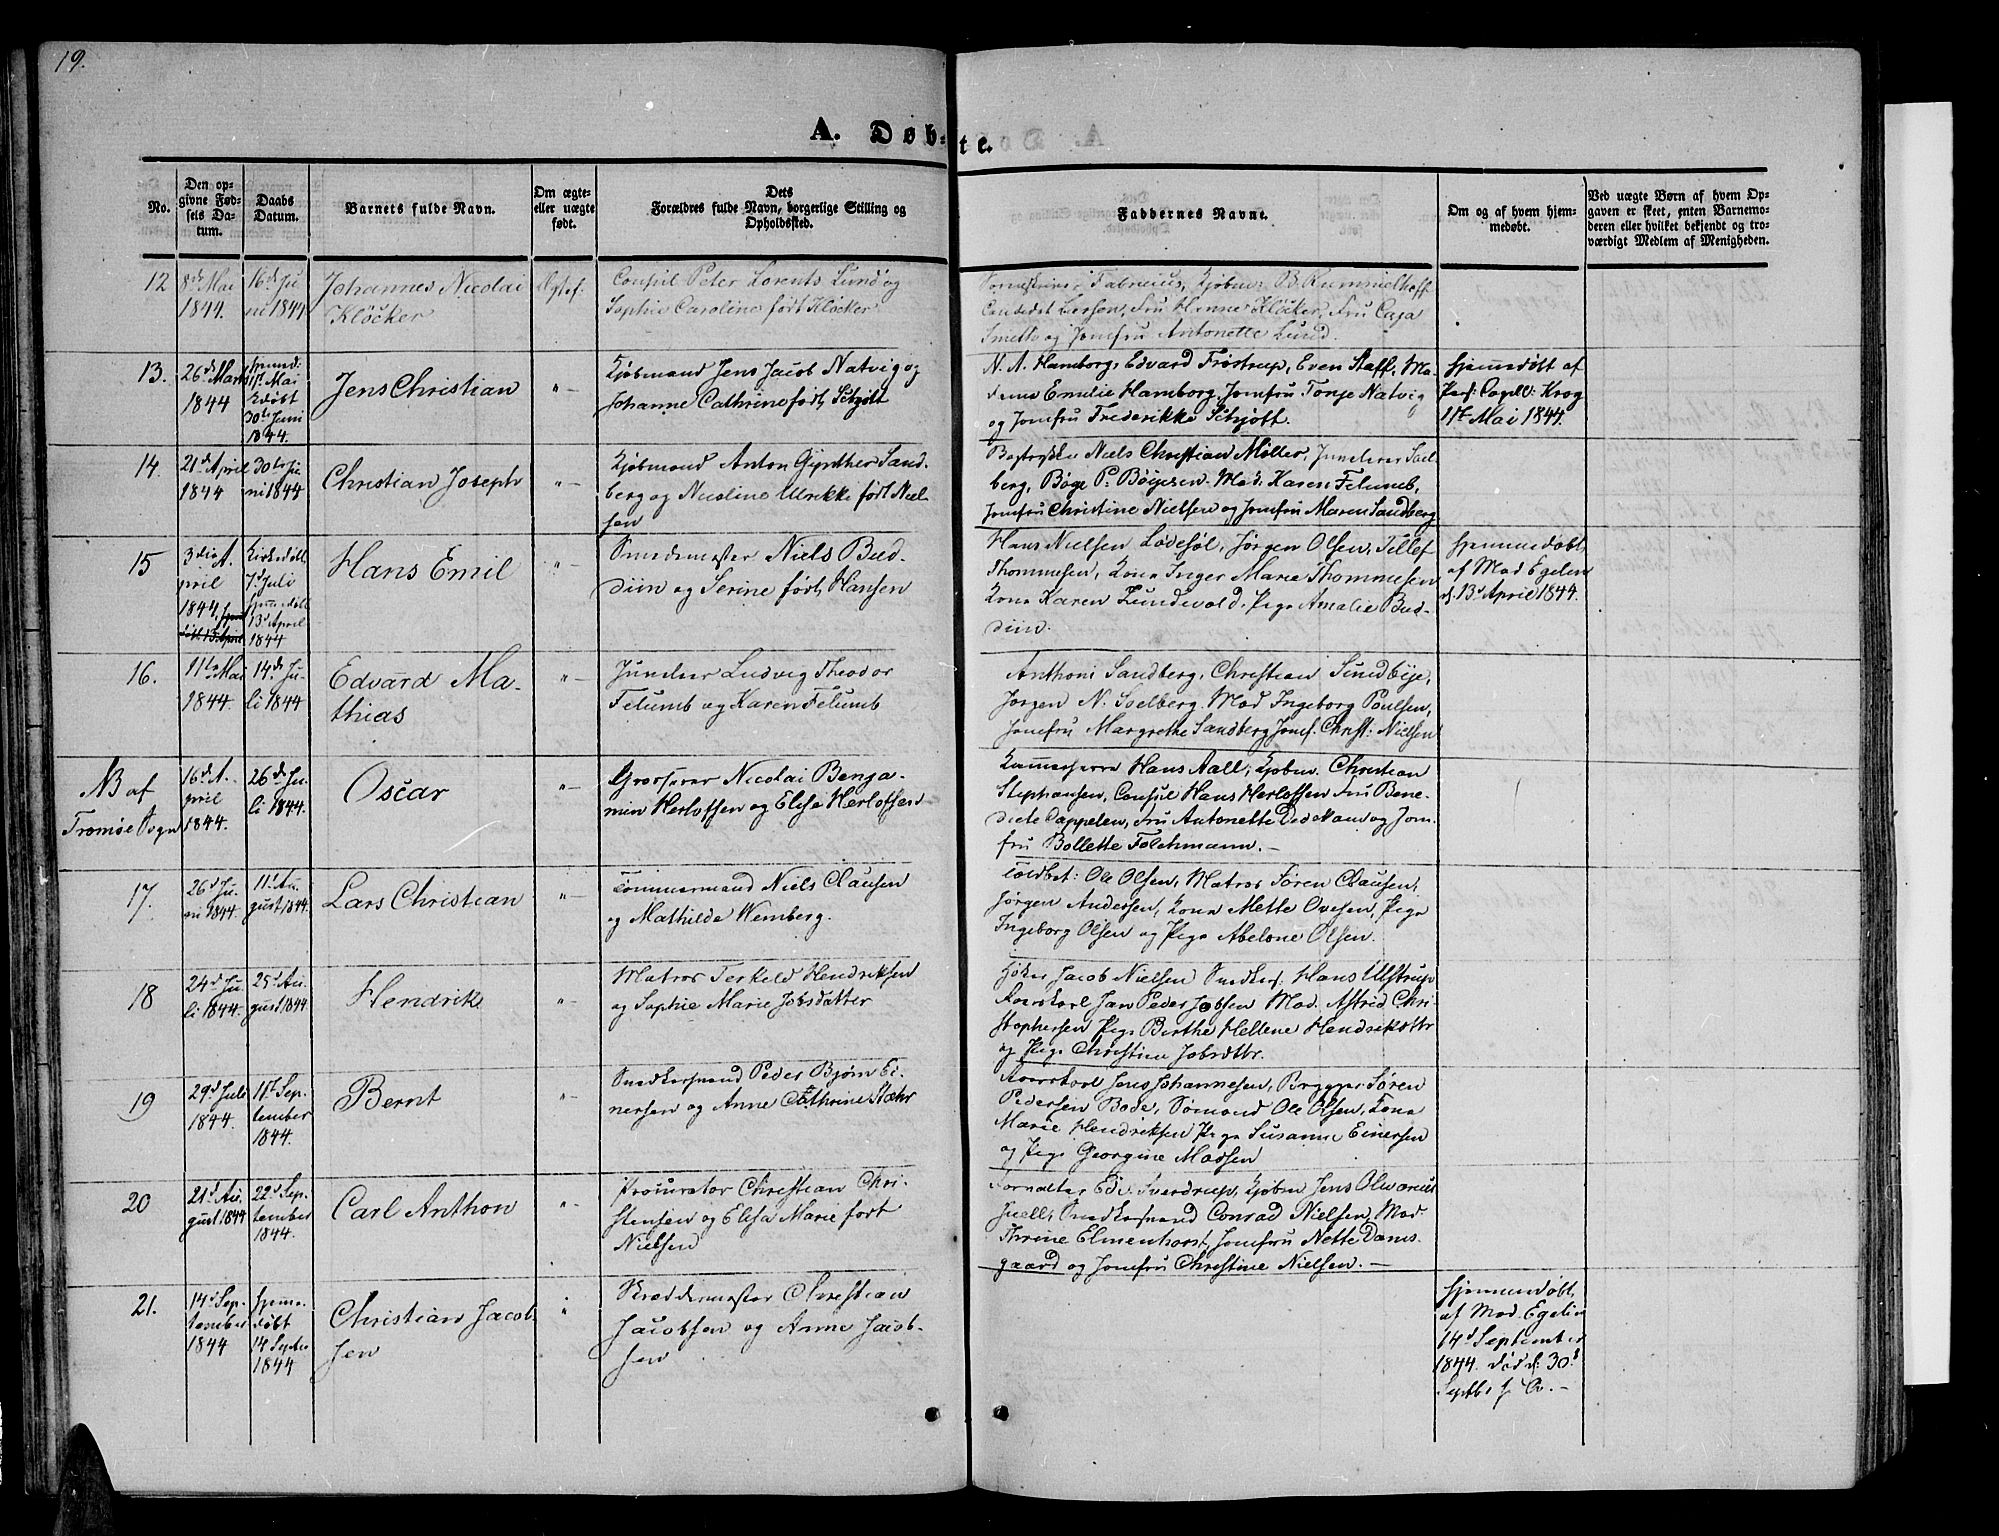 19.
A. Døbte.
No.
Den opgivne Fødsels Datum.
Daabs Datum.
Barnets fulde Navn.
Om ægte- eller uægte født.
Dets Forældres fulde Navn, borgerlige Stilling og Opholdssted.
Faddernes Navne.
Om og af hvem hjemmedøbt.
Ved uægte Børn af hvem Opgaven er skeet, enten Barnemoderen eller hvilket bekjendt og troværdigt Medlem af Menigheden.
12
8de Mai
1844.
16de Ju
ni 1844
Johannes Nicolai
Kløcker
Ægtef.
Consul Peter Lorents Lund og
Sophie Caroline født Kløcker
Sorenskriver Fabricius, Kjøbm: B. Rummelhoff
Candidat Larsen, Fru Hanne Kløcker, Fru Caja
Smith og Jomfru Antonette Lund.
13.
26de Marts
1844
hjemmd:
1ste Mai
kdøbt
30te Juni
1844.
Jens Christian
"-
Kjøbmand Jens Jacob Natvig og
Johanne Cathrine født Schjøtt
N. A. Hamborg, Edvard Frøstrup, Even Staff, Ma-
dame Emilie Hamborg, Jomfru Tonje Natvig
og Jomfru Frederikke Schjøtt.
hjemmedøbt af
Pers: Capell: Krog
1ste Mai 1844.
14.
21de April
1844
30te Ju
ni 1844
Christian Joseph
"-
Kjøbmand Anton Günther Sand-
berg og Nicoline Ulrikke født Niel-
sen
Bogtrykker Niels Christian Møller, Junckerer Soel-
berg, Bøge P. Bøijesen. Mad. Karen Felumb,
Jomfru Christine Nielsen og Jomfru Maren Sandberg
15
3die A-
pril
1844,
Kirkedøbt
7de Juli
hjemmedøbt
13d April
1844
Hans Emil
"-
Smedemester Niels Bud-
diin og Serine født Hansen
Hans Nielsen Lødesøl, Jørgen Olsen, Tellef
Thommesen, Kona Inger Marie Thommesen
Kona Karen Lundevold, Pige Amalie Bud-
diin.
hjemmedøbt
af Mad Egelin
d. 13d April 1844.
16.
11te Mai
1844.
14de Ju-
li 1844
Edvard Ma-
thias
"-
Juncker Ludvig Theodor
Felumb og Karen Felumb
Anthoni Sandberg, Christian Sundbye,
Jørgen N. Soelberg. Mad Ingeborg Poulsen,
Jomfru Margrethe Sandberg Jomf. Christ: Nielsen
NB af
Tromøe Sogn
16de A-
pril
1844.
26de Ju-
li 1844.
Oscar
"-
Grosserer Nicolai Benja-
min Herlofsen og Elisa Herlofsen
Kammerherre Hans Aall, Kjøbm. Christian
Stephansen, Consul Hans Herlofsen Fru Bene-
dicte Cappelen, Fru Antonette Dedekam og Jom-
fru Bollette Falchmann.-
17.
26d Ju-
ni 1844.
11t Au-
gust 1844.
Lars Christian
"-
Tømmermand Niels Clausen
og Mathilde Wemberg.
Toldbet: Ole Olsen, Matros Søren Clausen,
Jørgen Andersen, Kona Mette Ovesen, Pige
Ingeborg Olsen og Pige Abelone Olsen.
18
24d Ju-
li 1844.
25d Au-
gust 1844.
Hendrik
"-
Matros Terkeld Hendriksen
og Sophie Marie Jobsdatter
Høker Jacob Nielsen Snedkers: Hans Ulstrup
Roerskarl Jan Peder Jobsen Mad. Astrid Chri-
stophersen Pige Berthe Hellene Hendriksdttr
og Pige Christien Jobsdttr.
19
29d Juli
1844.
1st Sep-
tember
1844.
Bernt
"-
Snedkersvend Peder Bjørn Ei-
nersen og Anne Cathrine Stæhr
Roerskarl Jens Johannesen, Brygger Søren
Pedersen Bode, Sømand Ole Olsen, Kona
Marie Hendriksen Pige Susanne Einersen
og Pige Georgine Madsen
20
21d Au-
gust 1844
22d Sep-
tember
1844.
Carl Anthon
"-
Procurator Christian Chri-
stensen og Elisa Marie født
Nielsen
Forvalter Ed: Sverdrup, Kjøbm Jens Olivarius
Juell, Snedkersvend Conrad Nielsen, Mad:
Thrine Elmenhorst, Jomfru Nette Dams-
gaard og Jomfru Christine Nielsen.-
21.
14d Sep-
tember
1844
hjemme-
døbt
14 Septbr
1844
Christian Jacob-
sen
"
Skreddermester Christian
Jacobsen og Anne Jacob-
sen
hjemmedøbt
af Mad Egelin
14d September
1844. død d: 30d
Septb. s. A.-